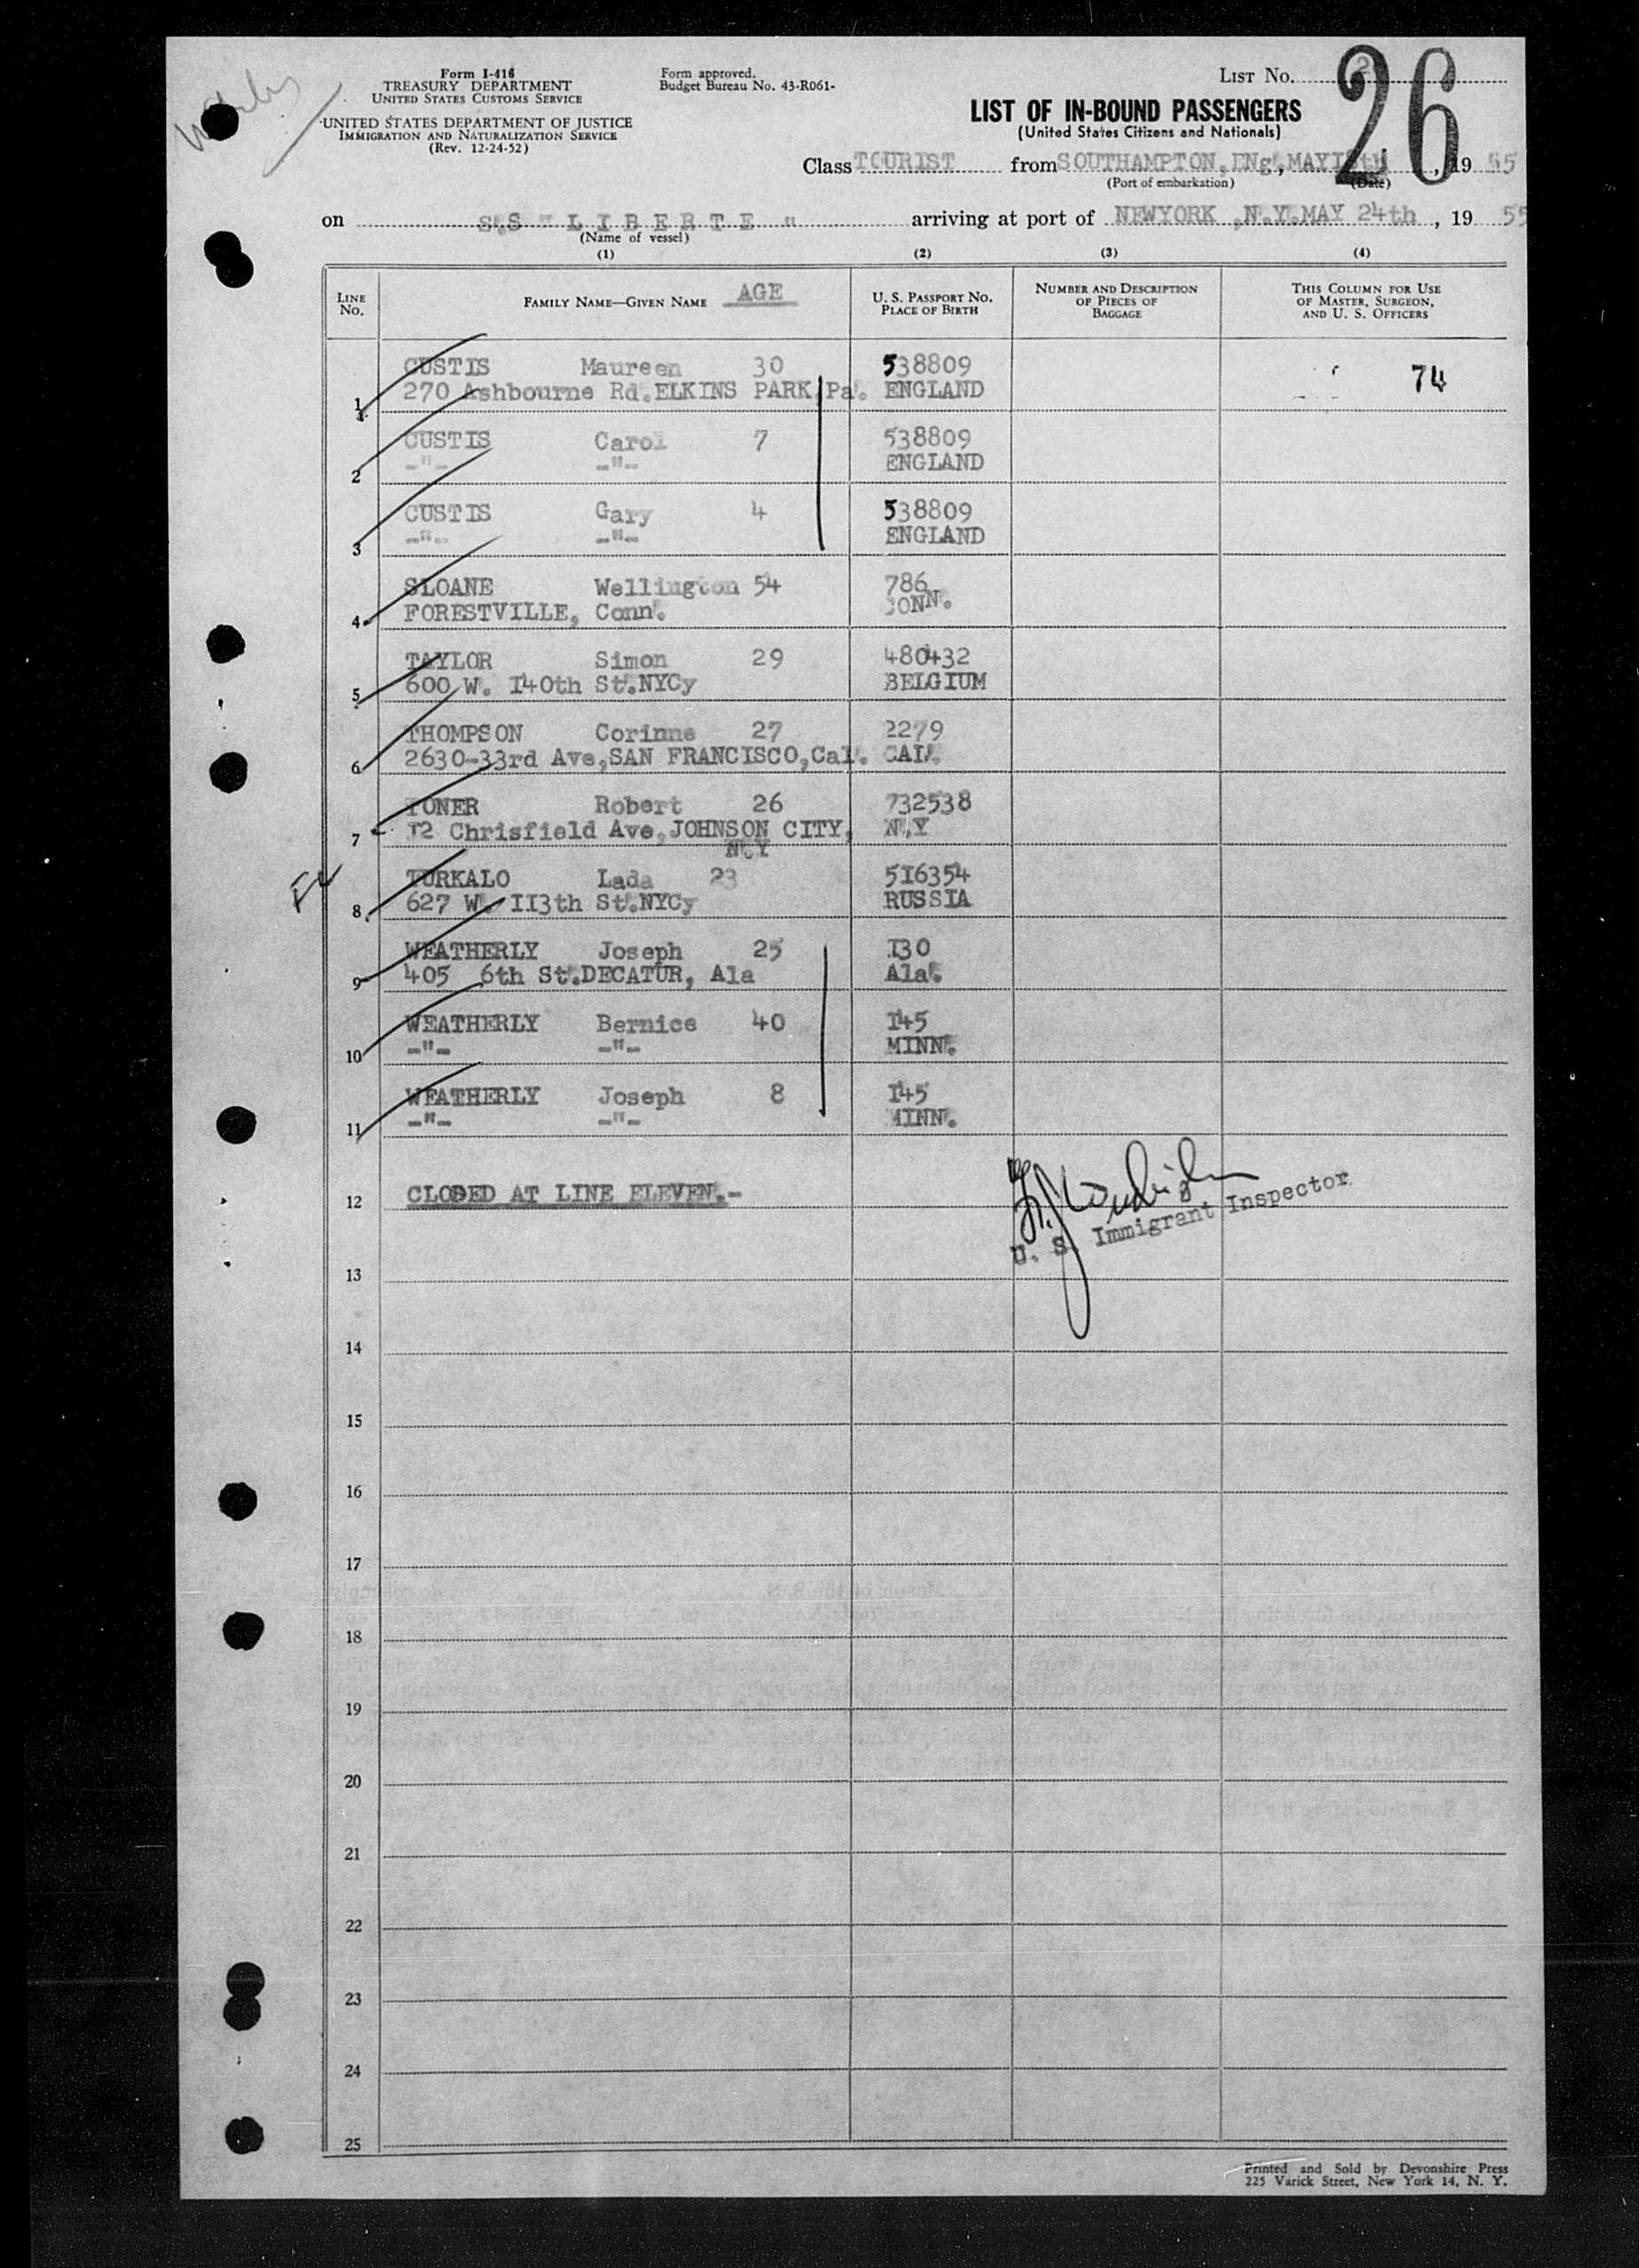 Form I-416
TREASURY DEPARTMENT
UNITED STATES CUSTOMS SERVICE
UNITED STATES DEPARTMENT OF JUSTICE
IMMIGRATION AND NATURALIZATION SERVICE
(Rev. 12-24-52)
Form approved.
Budget Bureau No. 43-R061-
LIST NO.
26
LIST OF IN-BOUND PASSENGERS
(United States Citizens and Nationals)
Class TOURIST from SOUTHAMPTON, ENg., MAY , 19 55
(Port of embarkation) (Date)
on S.S " L I B E R T E " arriving at port of NEWYORK ,N.Y.MAY 24th , 19 55
(Name of vessel)
(1) (2) (3) (4)
LINE NO. FAMILY NAME—GIVEN NAME AGE U. S. PASSPORT NO. PLACE OF BIRTH NUMBER AND DESCRIPTION OF PIECES OF BAGGAGE THIS COLUMN FOR USE OF MASTER, SURGEON, AND U. S. OFFICERS
CUSTIS Maureen 30 538809 74
1 270 Ashbourne Rd.ELKINS PARK,Pa. ENGLAND
CUSTIS Carol 7 538809
2 -"- -"- ENGLAND
CUSTIS Gary 4 538809
3 -"- -"- ENGLAND
SLOANE Wellington 54 786
4 FORESTVILLE, Conn. CONN.
TAYLOR Simon 29 480432
5 600 W. I40th St.NYCy BELGIUM
THOMPSON Corinne 27 2279
6 2630-33rd Ave,SAN FRANCISCO,Cal. CAL.
TONER Robert 26 732538
7 I2 Chrisfield Ave,JOHNSON CITY, N.Y
N.Y
TURKALO Lada 23 5I6354
8 627 W. II3th St.NYCy RUSSIA
WEATHERLY Joseph 25 I30
9 405 6th St.DECATUR, Ala Ala.
WEATHERLY Bernice 40 I45
10 -"- -"- MINN.
WEATHERLY Joseph 8 I45
11 -"- -"- MINN.
12 CLOSED AT LINE ELEVEN.-
U. S. Immigrant Inspector
13
14
15
16
17
18
19
20
21
22
23
24
25
Printed and Sold by Devonshire Press
225 Varick Street, New York 14, N. Y.